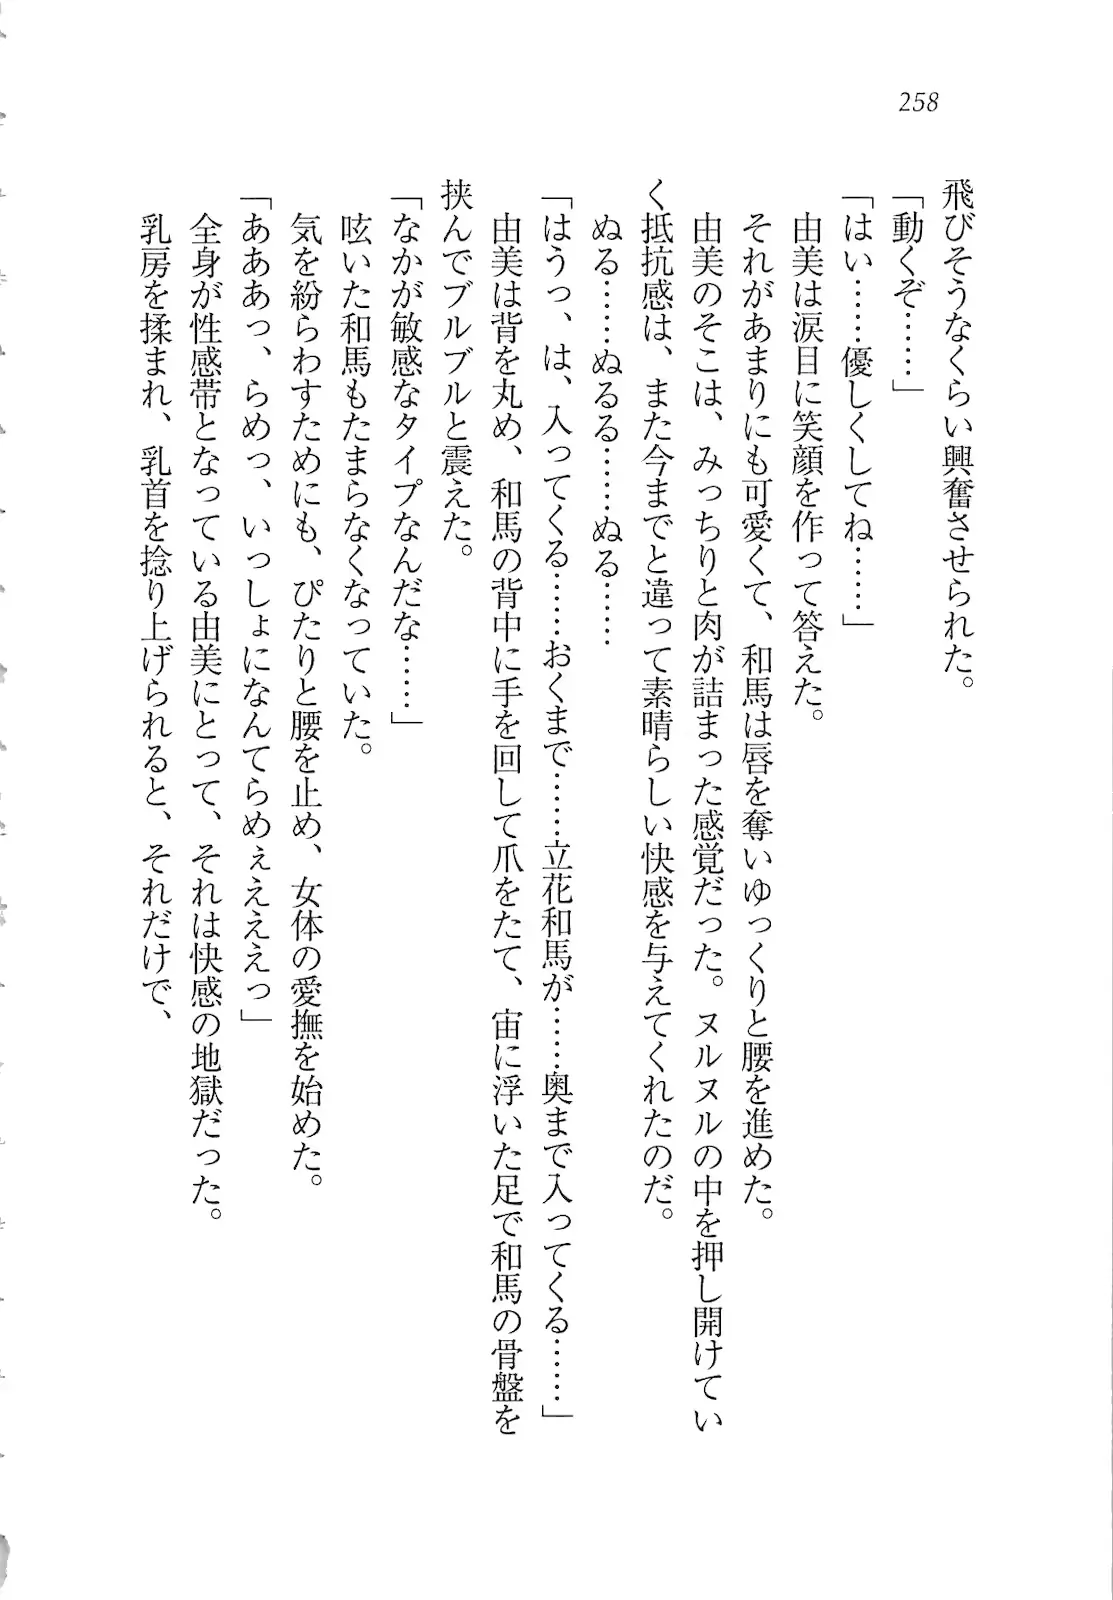 258
飛びそうなくらい興奮させられた。
「動くぞ……」
「はい……優しくしてね……」
由美は涙目に笑顔を作って答えた。
それがあまりにも可愛くて、和馬は唇を奪いゆっくりと腰を進めた。
由美のそこは、みっちりと肉が詰まった感覚だった。ヌルヌルの中を押し開けてい
く抵抗感は、また今までと違って素晴らしい快感を与えてくれたのだ。
ぬる……ぬるる……ぬる……
「はうっ、は、入ってくる……おくまで……立花和馬が……奥まで入ってくる……」
由美は背を丸め、和馬の背中に手を回して爪をたて、宙に浮いた足で和馬の骨盤を
挟んでブルブルと震えた。
「なかが敏感なタイプなんだな……」
呟いた和馬もたまらなくなっていた。
気を紛らわすためにも、ぴたりと腰を止め、女体の愛撫を始めた。
「あああっ、らめっ、いっしょになんてらめぇえええっ」
全身が性感帯となっている由美にとって、それは快感の地獄だった。
乳房を揉まれ、乳首を捻り上げられると、それだけで、